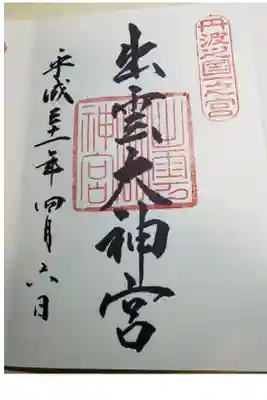 丹波國一之宮
出雲大神宮
平成三十一年四月六日